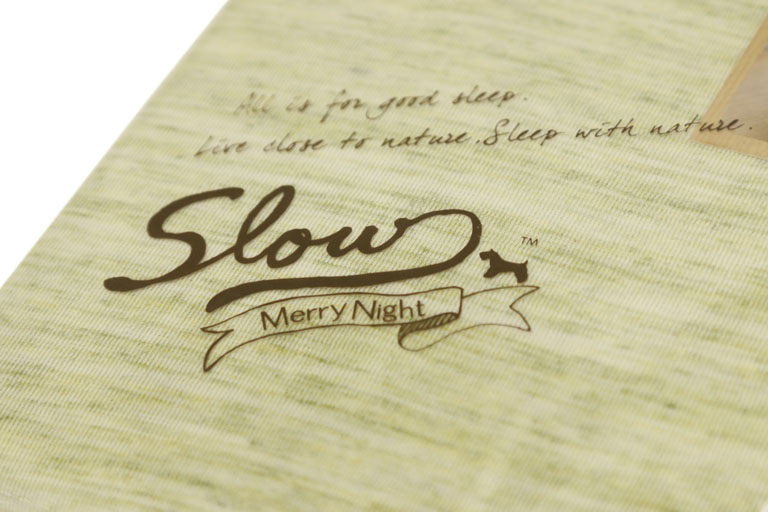 All is for good sleep.
Live close to nature. Sleep with nature.
Slow
TM
Merry Night